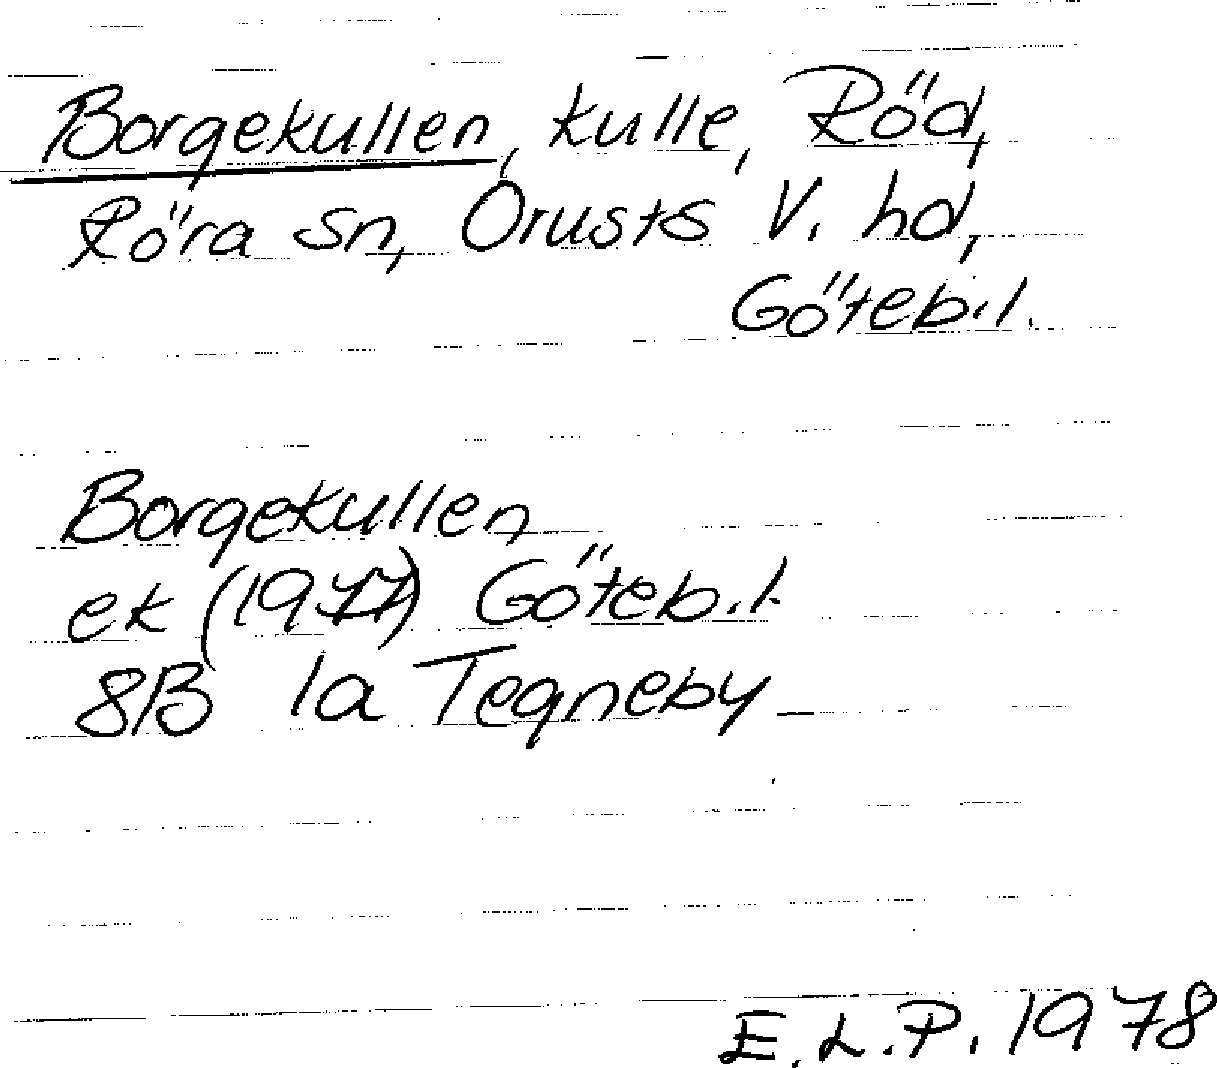 Borgekullen, kulle, Röd,
Röra sn, Orusts V. hd,
Göteb.l.
Borgekullen
ek (1977) Göteb.l.
8B 1a Tegneby
E.L.P. 1978